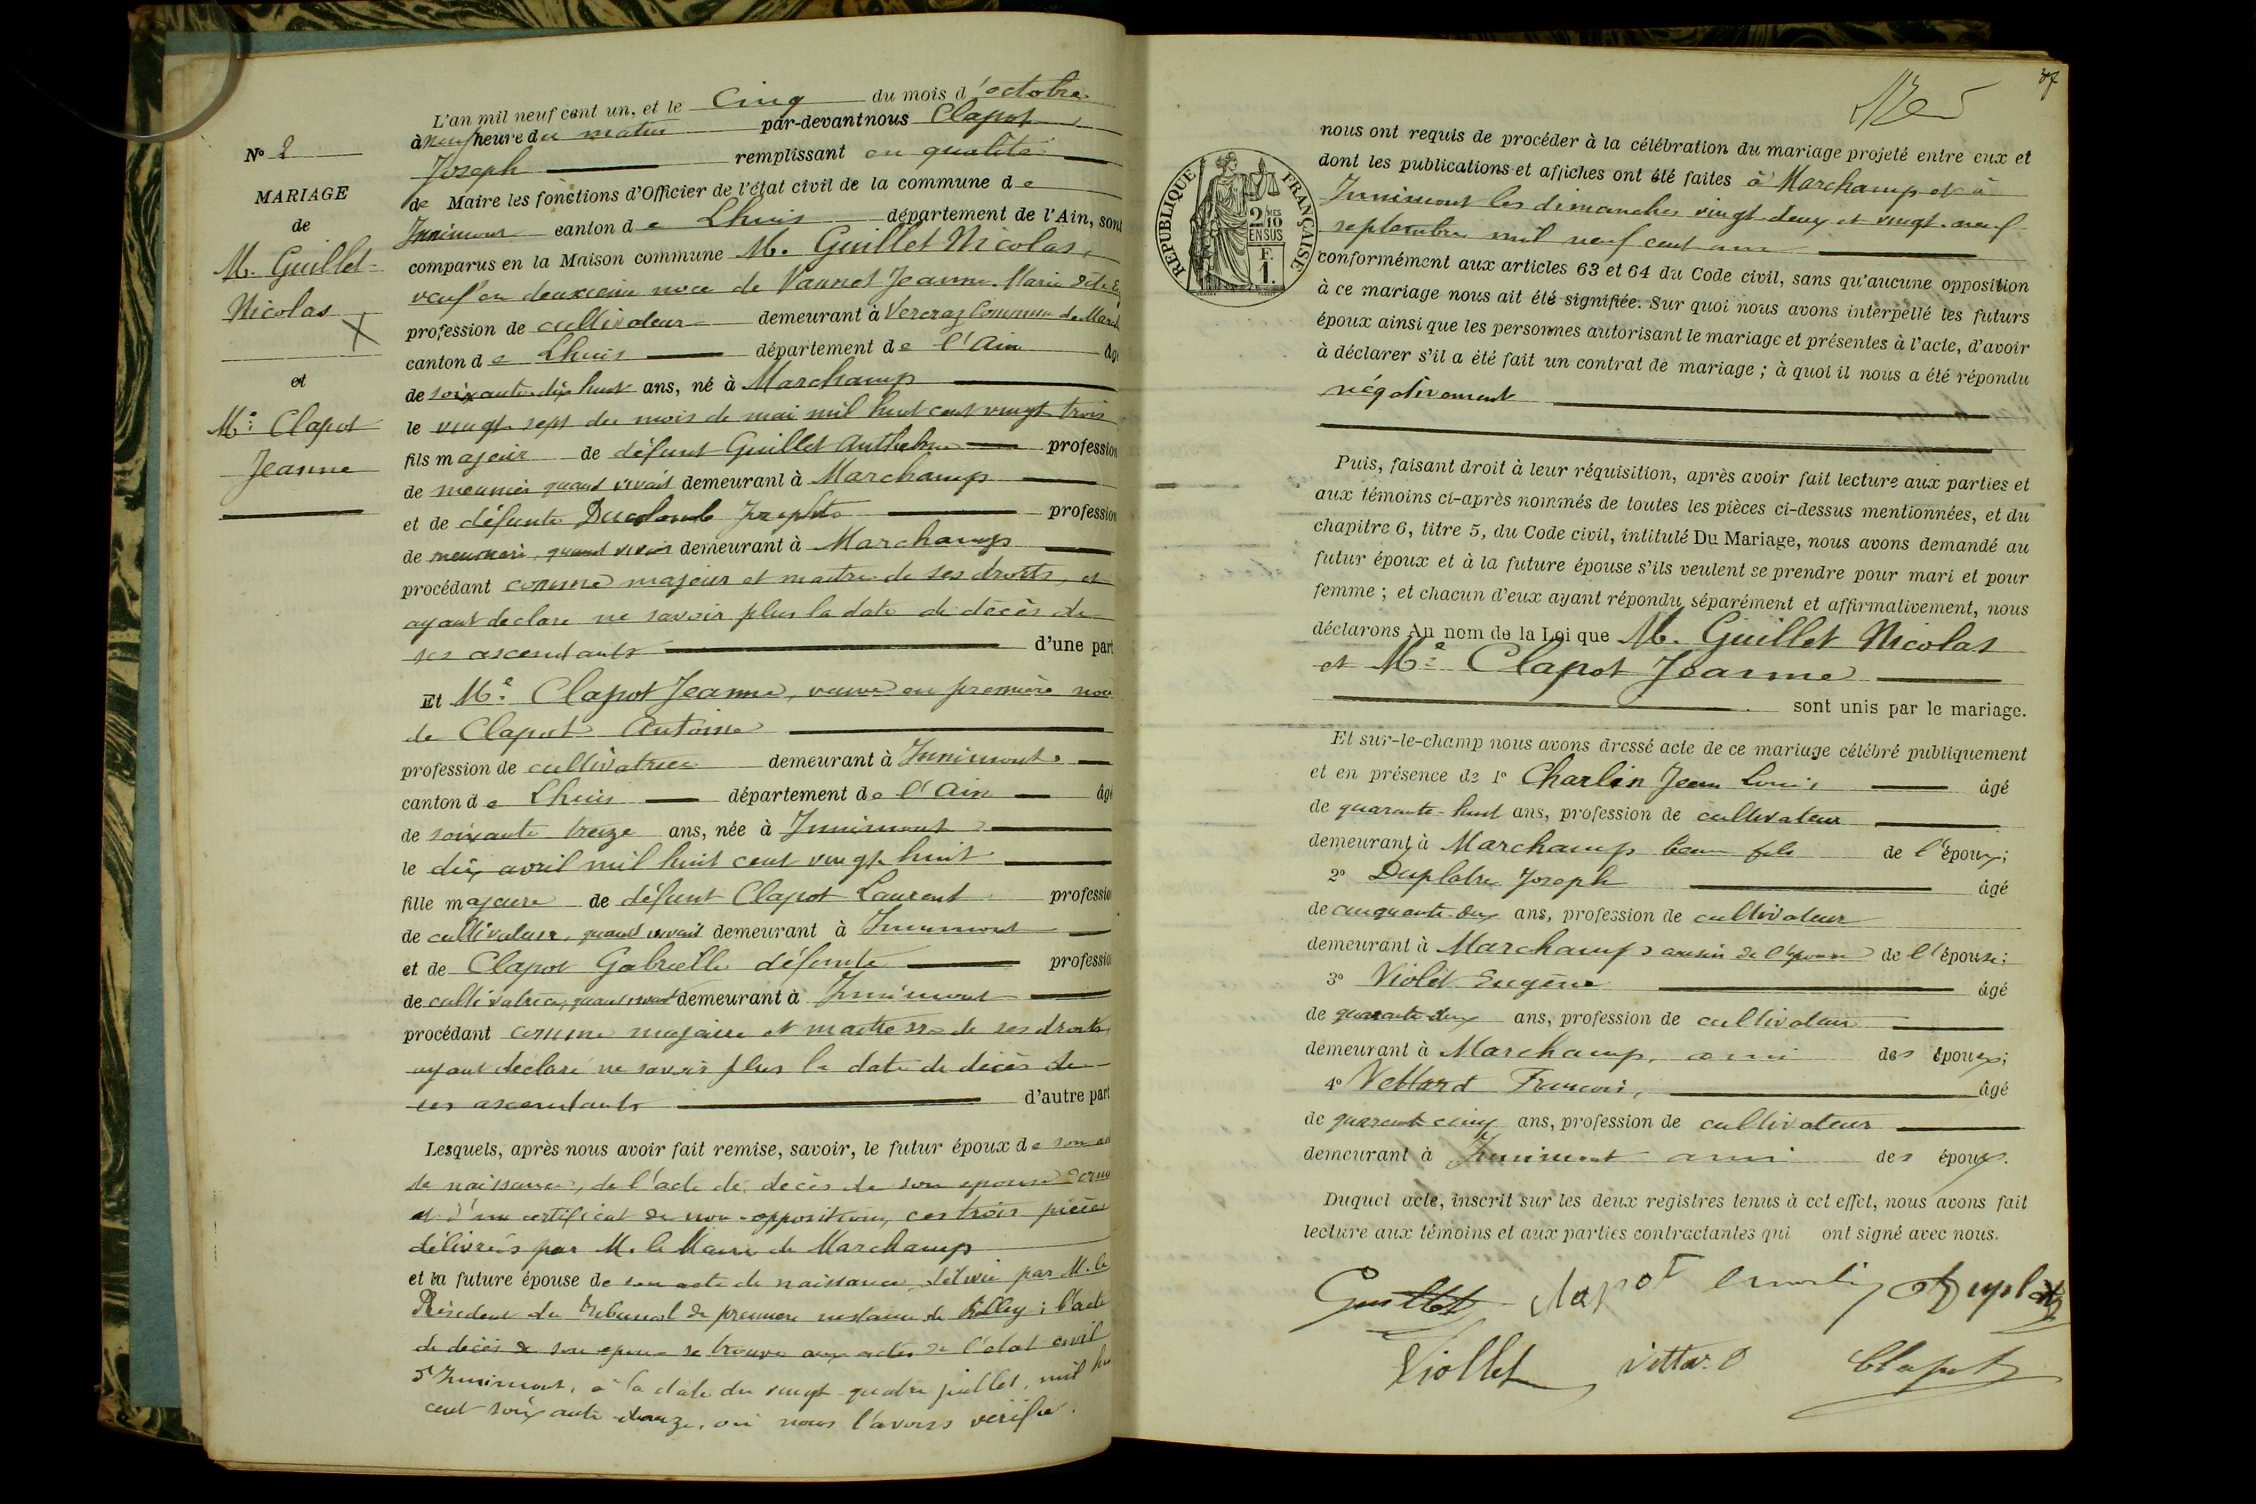 L'an mil neuf cent un, et le cinq du mois d'octobre
à neuf heure du matin par-devant nous Clapot
Joseph remplissant en qualité
de Maire les fonctions d'Officier de l'état civil de la commune de
Innimont canton de Lhuis département de l'Ain, sont
comparus en la Maison commune M. Guillet Nicolas,
veuf en deuxième noce de Vannet Jeanne Marie
profession de cultivateur demeurant à Vercraz Commune de March
canton de Lhuis département de l'Ain âgé
de soixante dix huit ans, né à Marchamp
le vingt sept du mois de mai mil huit cent vingt trois
fils majeur de défunt Guillet Anthelme profession
de meunier quand vivait demeurant à Marchamp
et de défunte Ducolomb Josephte profession
de meunière quand vivait demeurant à Marchamp
procédant comme majeur et maitre de ses droits, et
ayant déclaré ne savoir plus la date de décès de
ses ascendants d'une part
Et Me Clapot Jeanne, veuve en première noce
de Clapot Antoine
profession de cultivatrice demeurant à Innimont
canton de Lhuis département de l'Ain âgé
de soixante treize ans, née à Innimont
le dix avril mil huit cent vingt huit
fille majeure de défunt Clapot Laurent profession
de cultivateur, quand vivait demeurant à Innimont
et de Clapot Gabrielle défunte profession
de cultivatrice, quand vivait demeurant à Innimont
procédant comme majeure et maitresse de ses droits
ayant déclaré ne savoir plus la date de décès de
ses ascendants d'autre part
Lesquels, après nous avoir fait remise, savoir, le futur époux de son
de naissance, de l'acte de décès de son epouse
et d'un certificat de non-opposition, ces trois pièces
délivrées par M. le Maire de Marchamp
et la future épouse de son acte de naissance délivré par M. le
Président du Tribunal de première instance de Belley ; l'acte
de décès de son époux se trouve aux actes de l'état civil
d'Innimont, à la date du vingt-quatre juillet, mil hu
cent soixante-douze, où nous l'avons vérifié.
No 2
MARIAGE
de
M. Guillet
Nicolas
X
et
Me Clapot
Jeanne
87
RÉPUBLIQUE FRANÇAISE
2/10MES
EN SUS
F.
1.
nous ont requis de procéder à la célébration du mariage projeté entre eux et
dont les publications et affiches ont été faites à Marchamp et à
Innimont les dimanches vingt-deux et vingt-neuf
septembre mil neuf cent un
conformément aux articles 63 et 64 du Code civil, sans qu'aucune opposition
à ce mariage nous ait été signifiée. Sur quoi nous avons interpellé les futurs
époux ainsi que les personnes autorisant le mariage et présentes à l'acte, d'avoir
à déclarer s'il a été fait un contrat de mariage ; à quoi il nous a été répondu
négativement
Puis, faisant droit à leur réquisition, après avoir fait lecture aux parties et
aux témoins ci-après nommés de toutes les pièces ci-dessus mentionnées, et du
chapitre 6, titre 5, du Code civil, intitulé Du Mariage, nous avons demandé au
futur époux et à la future épouse s'ils veulent se prendre pour mari et pour
femme ; et chacun d'eux ayant répondu séparément et affirmativement, nous
déclarons Au nom de la Loi que M. Guillet Nicolas
et Me Clapot Jeanne
sont unis par le mariage.
Et sur-le-champ nous avons dressé acte de ce mariage célébré publiquement
et en présence de 1o Charlin Jean Louis âgé
de quarante-huit ans, profession de cultivateur
demeurant à Marchamp beau fils de l'époux;
2o Duplatre Joseph âgé
de cinquante-deux ans, profession de cultivateur
demeurant à Marchamp cousin de l'épouse de l'épouse;
3o Violet Eugène âgé
de quarante deux ans, profession de cultivateur
demeurant à Marchamp, ami des époux;
4o Vettard François, âgé
de quarante cinq ans, profession de cultivateur
demeurant à Innimont ami des époux.
Duquel acte, inscrit sur les deux registres tenus à cet effet, nous avons fait
lecture aux témoins et aux parties contractantes qui ont signé avec nous.
Guillet Clapot Duplatre
Viollet Vittard Clapot